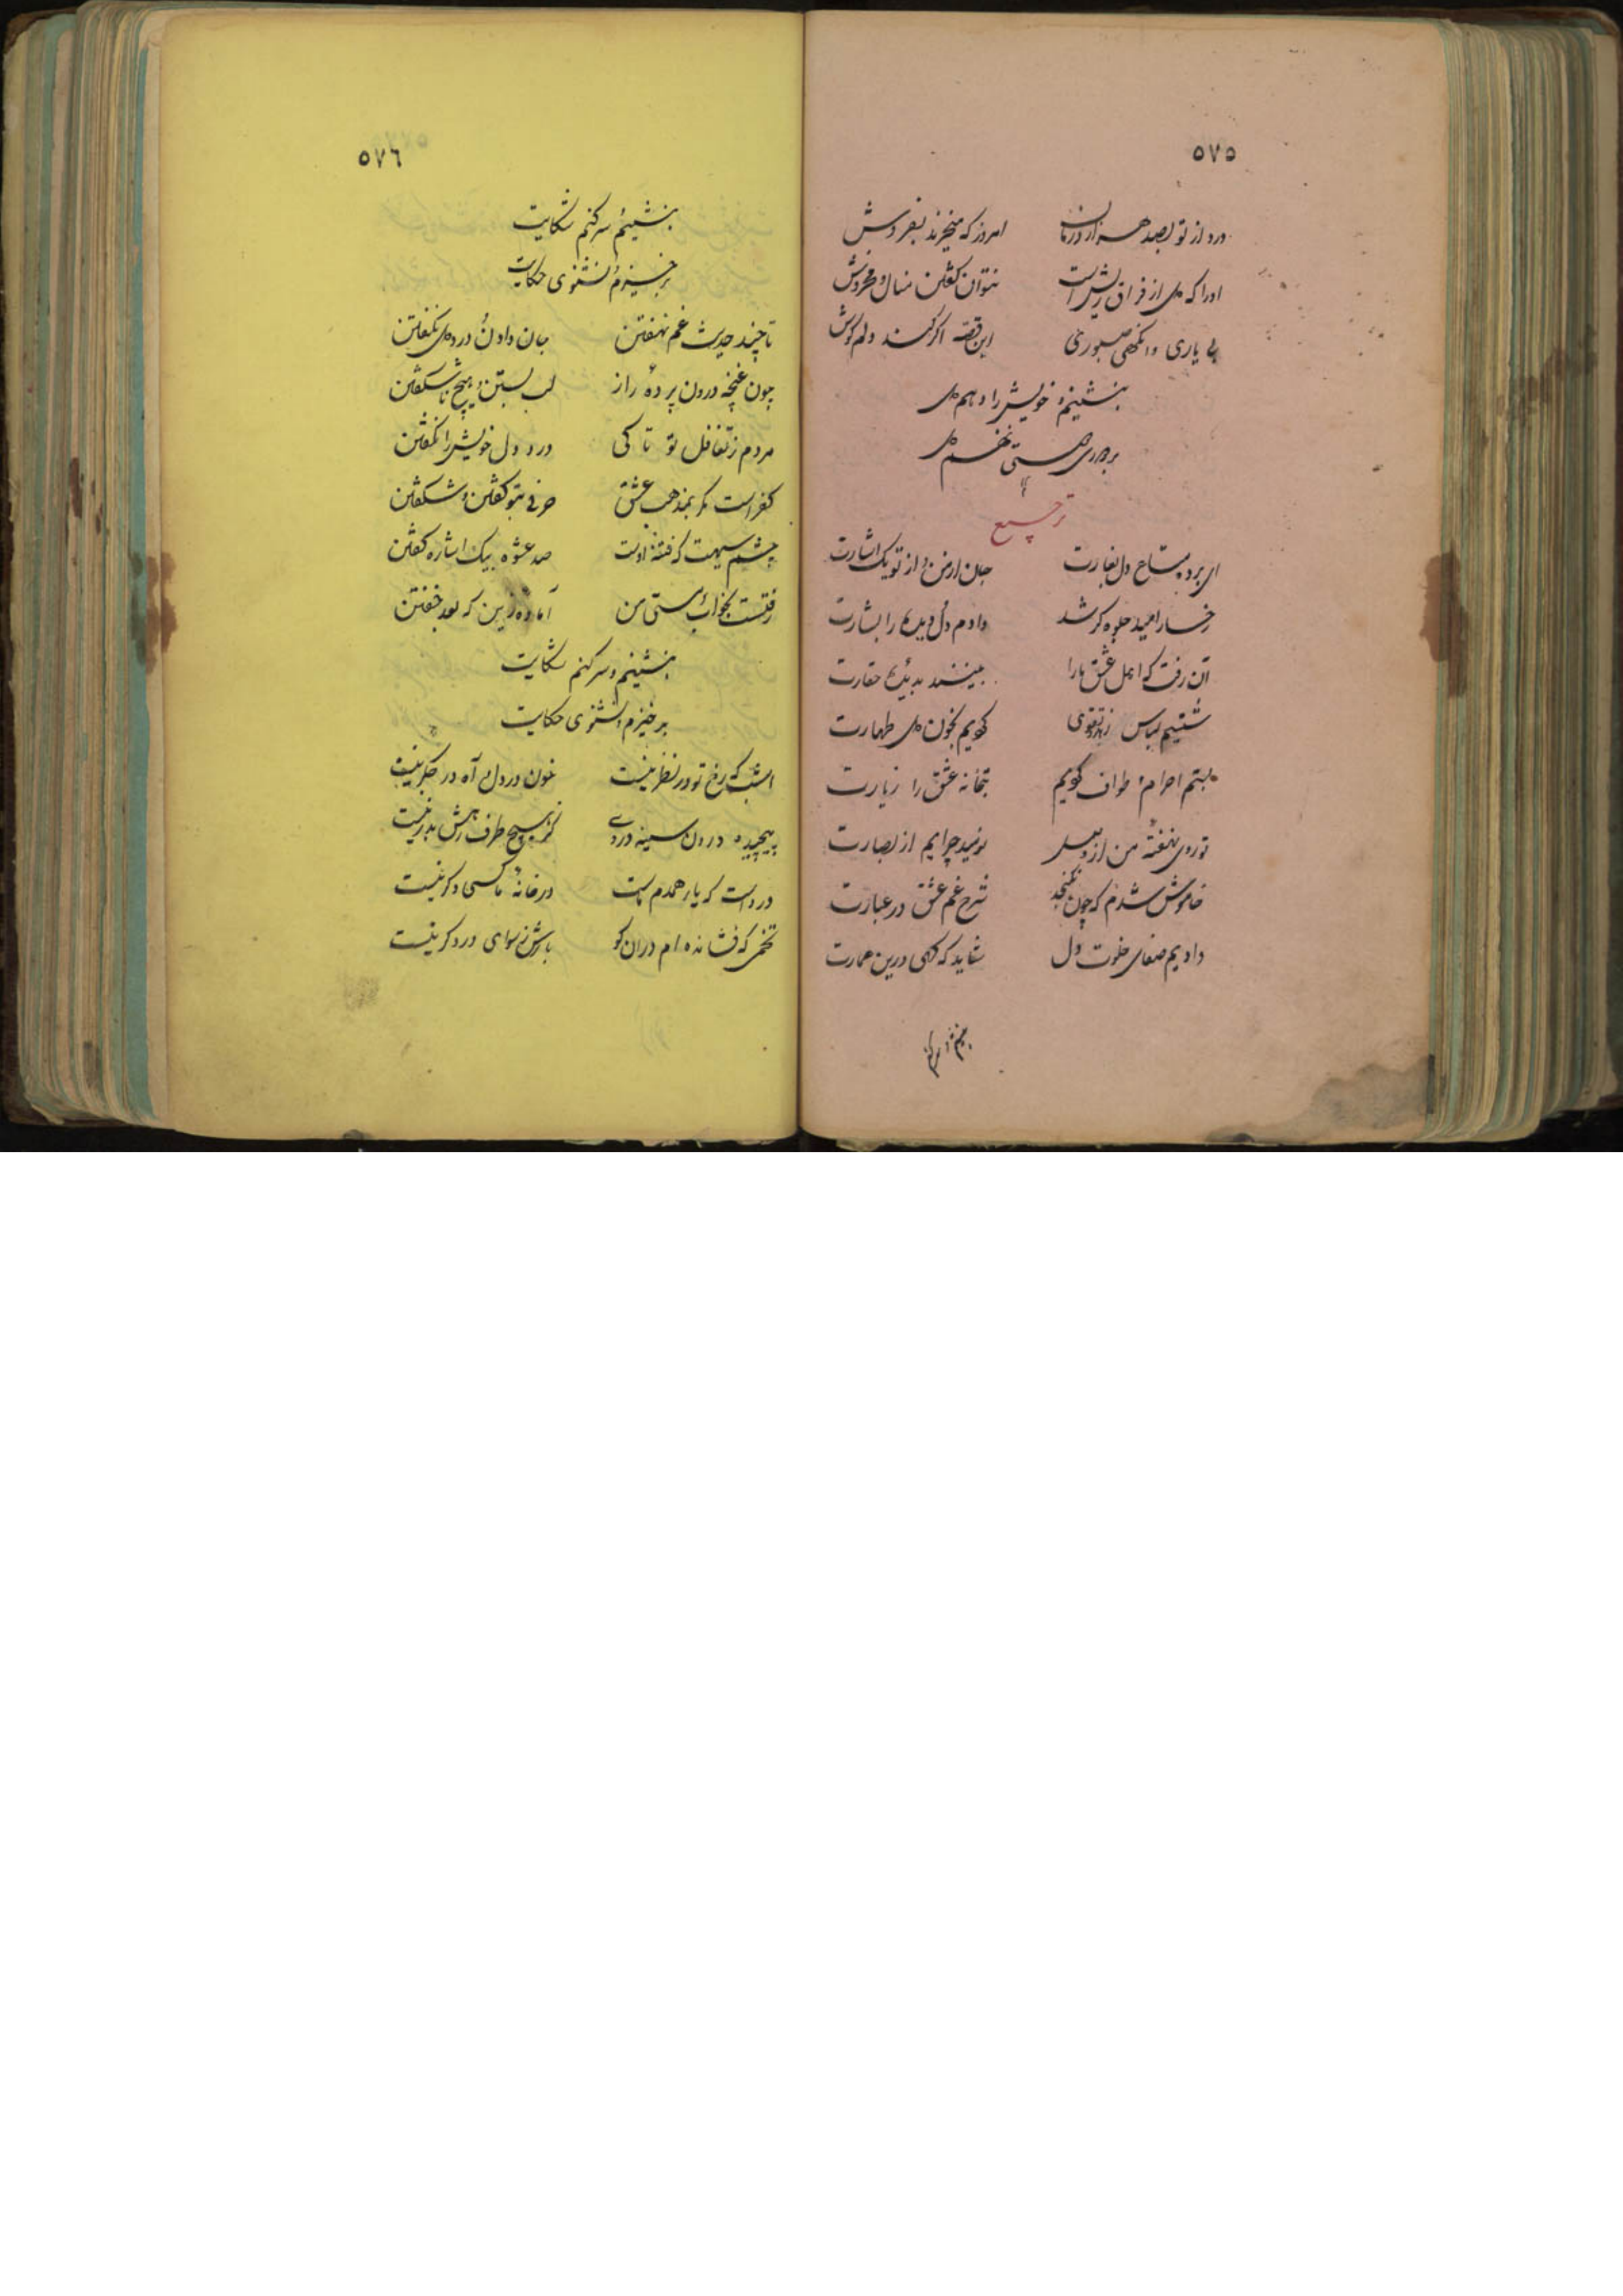 ٥٧٥
درد از تو بصد هزار درمان امروز که میخرند بفروش
اورا که دل از فراق ریش است نتوان گفتن منال و مخروش
بی یاری وانگهی صبوری این قصه اگر کند دلم گوش
بنشینم و خویش را دهم دل
بردارم
ترجیع
ای برده متاع دل بغارت جان از من و از تو یک اشارت
رخسار امید جلوه گر شد دادم دل و دیده را بشارت
آن رفت که اهل عشق ما را بینند بدیده حقارت
شستیم لباس زهد و تقوی کردیم بخون دل طهارت
بستم احرام طواف کویم بتخانه عشق را زیارت
تو روی نهفته من از دل نومید چرایم از بصارت
خاموش شدم که چون نگنجد شرح غم عشق در عبارت
دادیم صفای خلوت دل شاید که گهی درین عمارت
بنشینم و سرکنم
٥٧٦
بنشینم و سرکنم شکایت
برخیزم و نشنوی حکایت
تا چند حدیث غم نهفتن جان دادن و درد دل نگفتن
چون غنچه درون پرده راز لب بستن و هیچ ناشکفتن
مردم ز تغافل تو تا کی درد دل خویش را نگفتن
کفر است مگر بمذهب عشق حرفی بتو گفتن و شکفتن
چشم سیهت که فتنه اوست صد عشوه بیک اشاره گفتن
رفتست بخواب مستی من آماده زین که بعد خفتن
بنشینم و سرکنم شکایت
برخیزم و نشنوی حکایت
امشب که رخ تو در نظر نیست خون در دل و آه در جگر نیست
پیچیده درون سینه دردی کز هیچ طرف رهش بدر نیست
درد است که یار همدم ماست در خانه ما کسی دگر نیست
تخمی که فشانده ام دران کو بارش ز سوای درد گر نیست